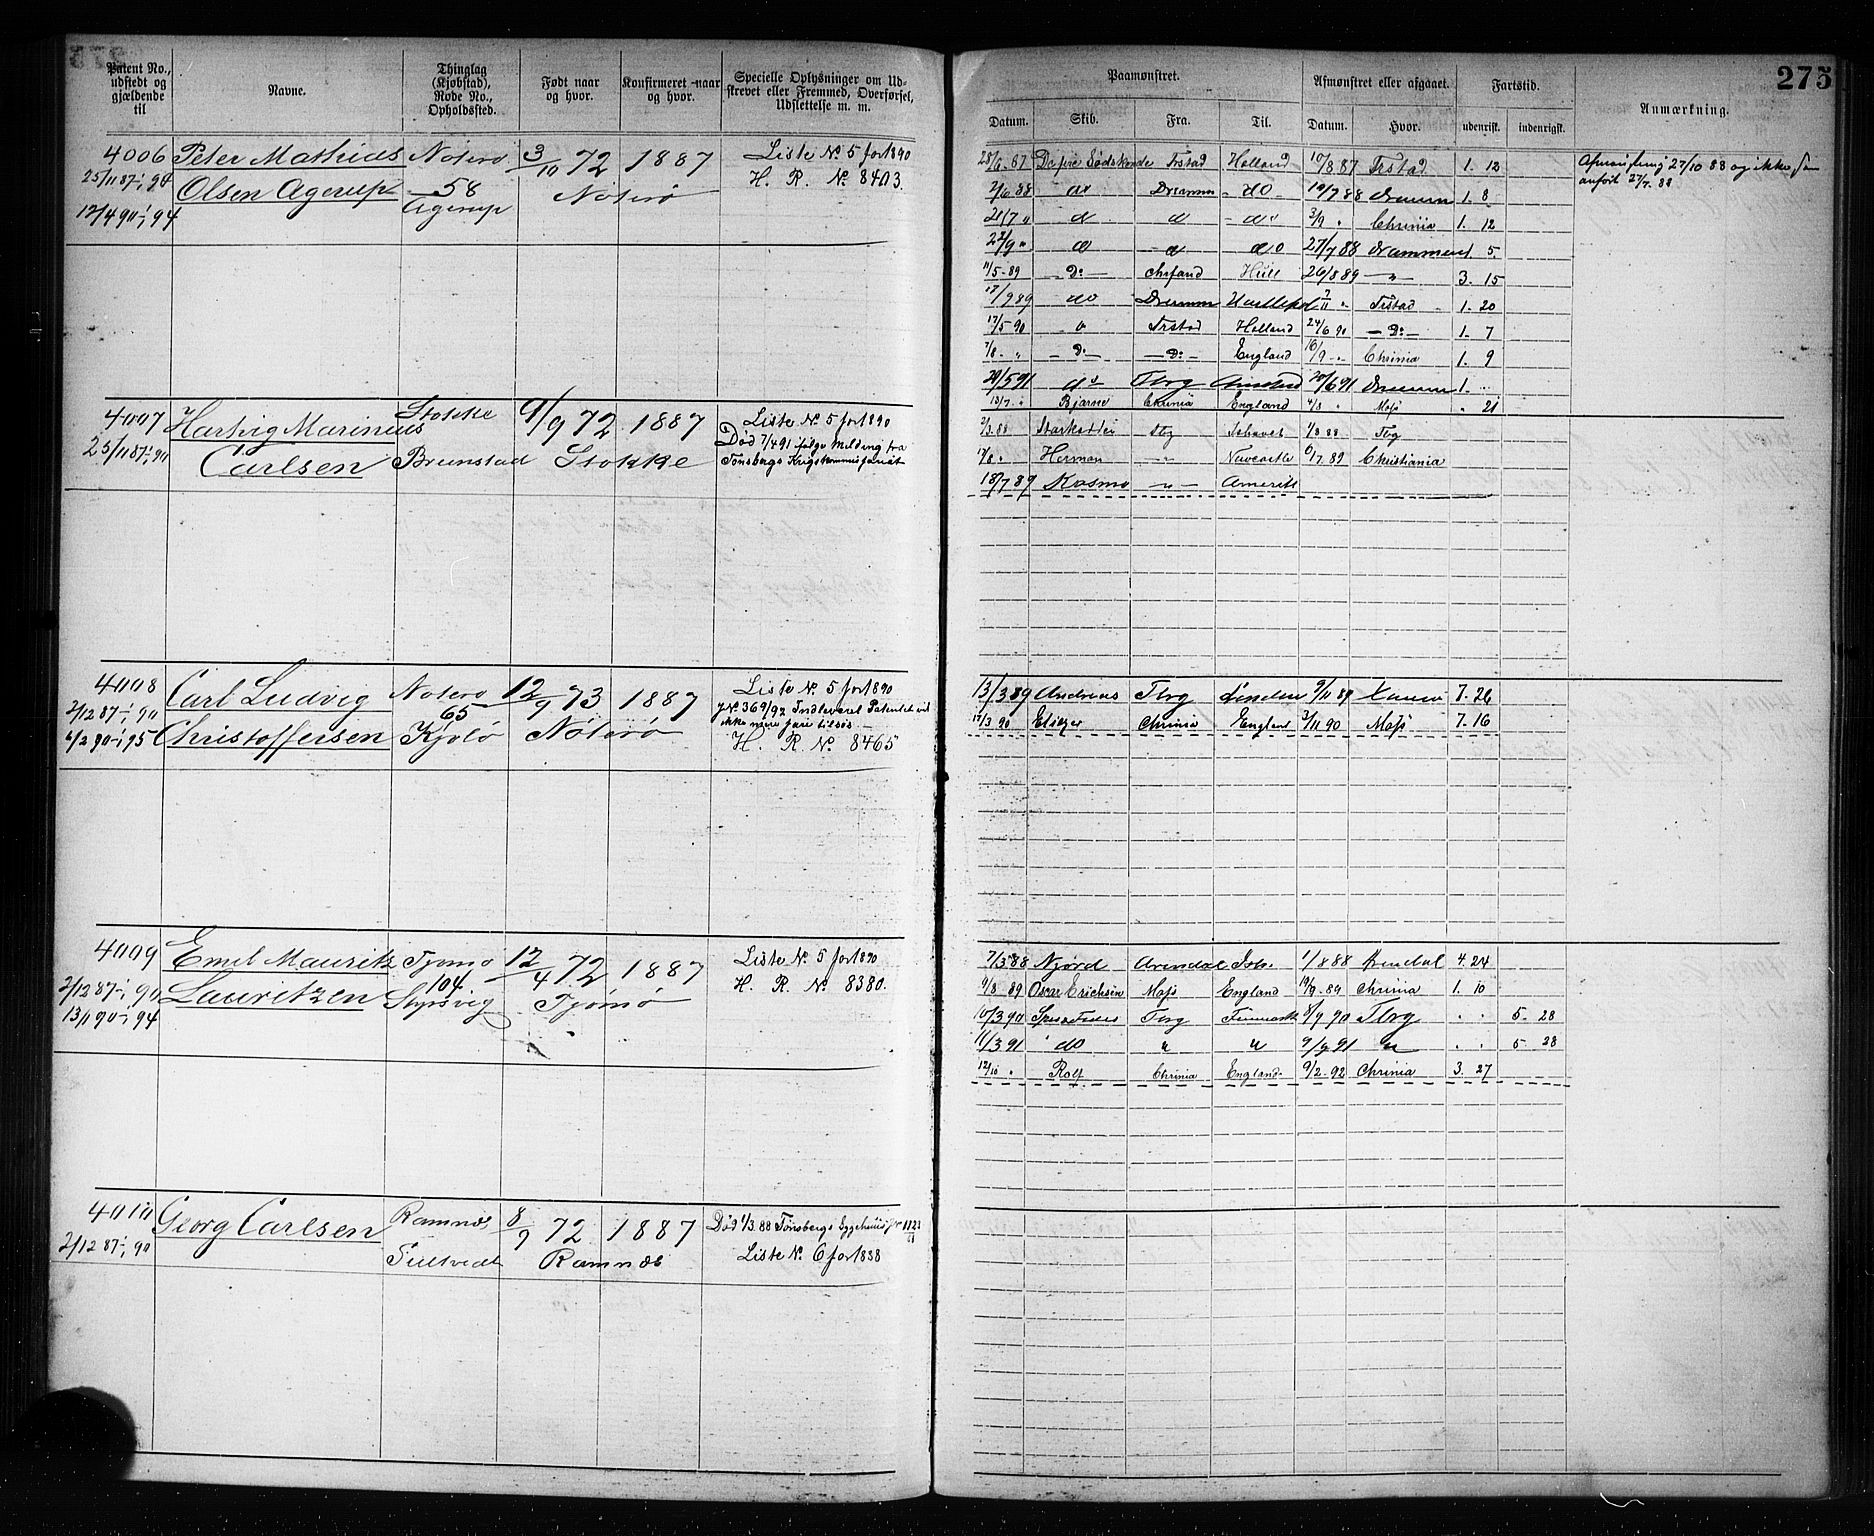 275
Patent No., udstedt og gjældende til
Navne.
Thinglag (Kjøbstad), Rode No., Opholdssted.
Født naar og hvor.
Konfirmeret naar og hvor.
Specielle Oplysninger om Udskrevet eller Fremmed, Overførsel, Udslettelse m. m.
Paamønstret.
Afmønstret eller afgaaet.
Fartstid.
Anmærkning.
Datum. Skib. Fra. Til. Datum. Hvor. udenrikst. indenrigst.
4006 Peter Mathias Noterø 3/10 72 1887 Liste No. 5 for 1890
25/11 87-1/1 90 Olsen Agerup 58 Noterø H. R. No. 8403.
12/4 90-1/1 94 Agerup
28/6 87 Frstad Holland 10/8 87 Frstad 1. 12
2/6 88 do Drammn do Drammn 1. 8
Chrinia 1. 12
do 27/7 88 Drammen 1. 5
11/5 89 Do Hull 26/8 89 3. 15
do Drammn Frstad 1. 20
17/5 90 Frstad Holland 24/6 90 Do 1. 7
7/8 Do Do England 16/9 Chrinia 1. 9
29/5 91 do Tbrg 20/6 91 Drammn 1.
13/7 Bjarne Chrinia England 4/8 Moss 21
4007 Hartvig Marinius Stokke 9/9 72 1887 Liste No. 5 for 1890
25/11 87-1/1 90 Carlsen Brunstad Stokke Død 7/4 91 ifølge Melding fra
Tønsbergs Krigskommissariat
2/3 88 1/8 88 Tbg
Herman Newcastle 6/7 89 Christiania
18/7 89 Kosmo Amerik
4008 Carl Ludvig Noterø 12/9 73 1887 Liste No. 5 for 1890
2/12 87-1/1 90 65 J No 369/92 Indleveret Patentet vil
ikke mere fare tilsøs
6/2 90-1/1 95 Christoffersen Kjølø Noterø H. R. No. 8465
13/3 89 Andreas Tbrg London 9/11 89 7. 26
17/3 90 Eliezer Chrinia England 3/11 90 Moss 7. 16
4009 Emil Mauritz Tjømø 12/4 72 1887 Liste No. 5 for 1890
2/12 87-1/1 90 Lauritzen 104 Tjømø H. R. No. 8380.
13/1 90-1/1 94 Styrsvig
7/3 88 Njørd Arendal Ish. 1/8 88 Arendal 4. 24
9/8 89 Oscar Erichsen Moss England 19/9 89 Chrinia 1. 10
10/3 90 Spes & Fides Tbrg Finmark 8/9 90 Tbrg 5. 28
11/3 91 do 9/9 91 5. 28
12/10 Rolf Chrinia England 9/2 92 Chrinia 3. 27
4010 Georg Carlsen Ramnæs 8/9 72 1887 Død 1/3 88 Tønsbergs
2/12 87-1/1 90 Ramnæs Liste No. 6 for 1888